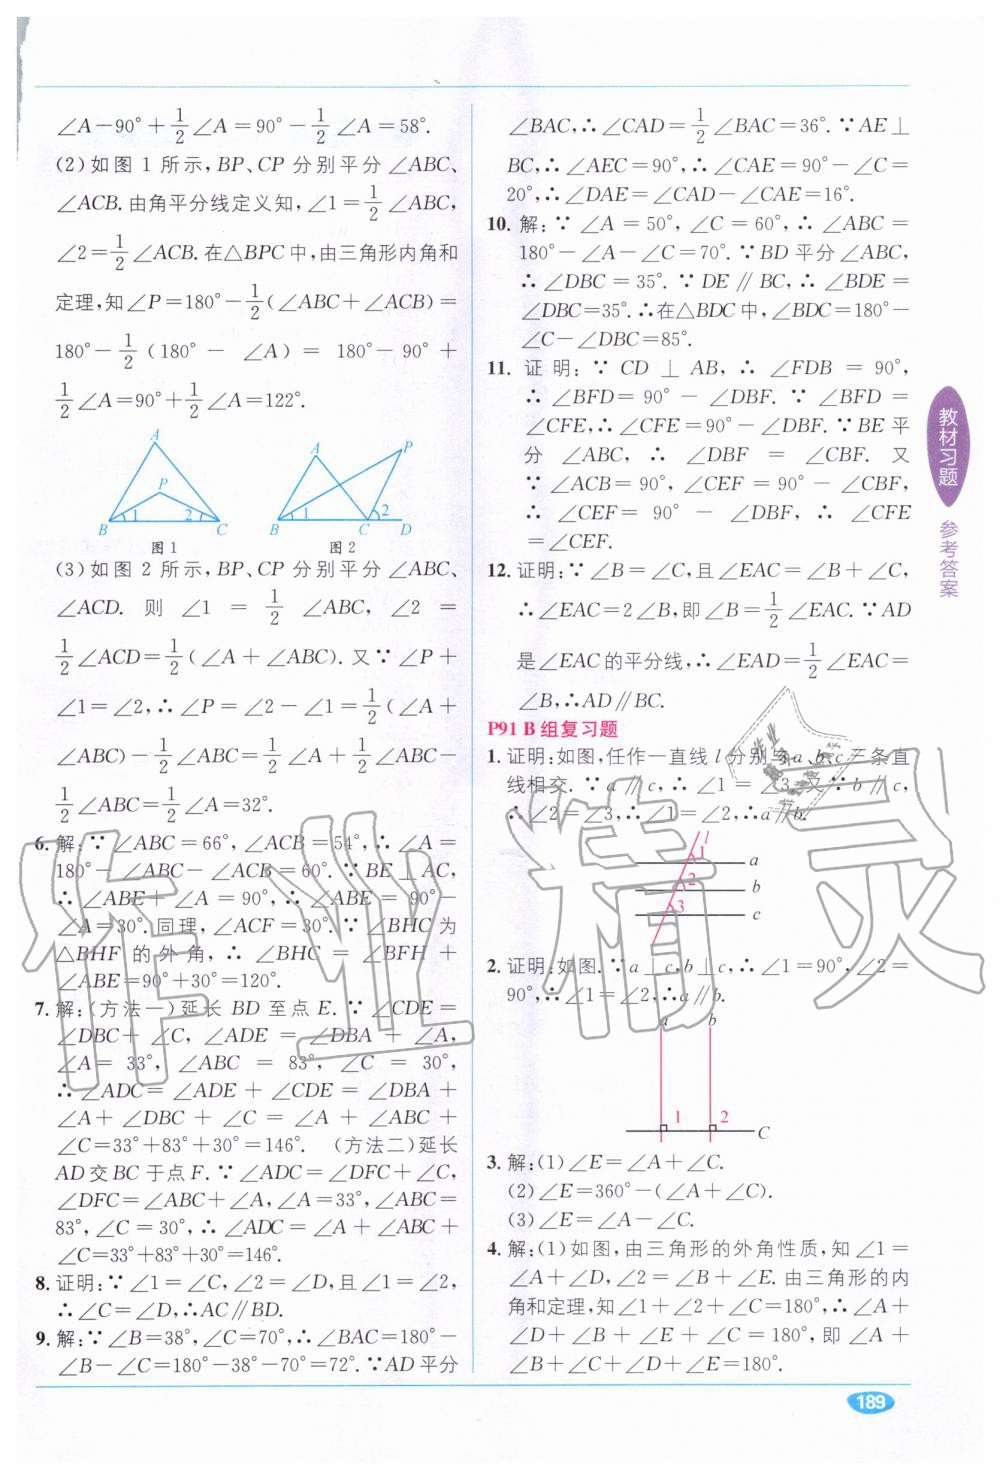 ∠A－90°＋1/2∠A＝90°－1/2∠A＝58°.
(2)如图1所示,BP、CP分别平分∠ABC、
∠ACB.由角平分线定义知,∠1＝1/2∠ABC,
∠2＝1/2∠ACB.在△BPC中,由三角形内角和
定理,知∠P＝180°－1/2(∠ABC＋∠ACB)＝
180°－1/2(180°－∠A)＝180°－90°＋
1/2∠A＝90°＋1/2∠A＝122°.
A
P
B 1 2 C
图1
A P
B 1 C 2 D
图2
(3)如图2所示,BP、CP分别平分∠ABC、
∠ACD.则∠1＝1/2∠ABC,∠2＝
1/2∠ACD＝1/2(∠A＋∠ABC).又∵∠P＋
∠1＝∠2,∴∠P＝∠2－∠1＝1/2(∠A＋
∠ABC)－1/2∠ABC＝1/2∠A＋1/2∠ABC－
1/2∠ABC＝1/2∠A＝32°.
6.解:∵∠ABC＝66°,∠ACB＝54°,∴∠A＝
180°－∠ABC－∠ACB＝60°.∵BE⊥AC,
∴∠ABE＋∠A＝90°,∴∠ABE＝90°－
∠A＝30°.同理,∠ACF＝30°.∵∠BHC为
△BHF的外角,∴∠BHC＝∠BFH＋
∠ABE＝90°＋30°＝120°.
7.解:(方法一)延长BD至点E.∵∠CDE＝
∠DBC＋∠C,∠ADE＝∠DBA＋∠A,
∠A＝33°,∠ABC＝83°,∠C＝30°,
∴∠ADC＝∠ADE＋∠CDE＝∠DBA＋
∠A＋∠DBC＋∠C＝∠A＋∠ABC＋
∠C＝33°＋83°＋30°＝146°.(方法二)延长
AD交BC于点F.∵∠ADC＝∠DFC＋∠C,
∠DFC＝∠ABC＋∠A,∠A＝33°,∠ABC＝
83°,∠C＝30°,∴∠ADC＝∠A＋∠ABC＋
∠C＝33°＋83°＋30°＝146°.
8.证明:∵∠1＝∠C,∠2＝∠D,且∠1＝∠2,
∴∠C＝∠D,∴AC∥BD.
9.解:∵∠B＝38°,∠C＝70°,∴∠BAC＝180°－
∠B－∠C＝180°－38°－70°＝72°.∵AD平分
∠BAC,∴∠CAD＝1/2∠BAC＝36°.∵AE⊥
BC,∴∠AEC＝90°,∴∠CAE＝90°－∠C＝
20°,∴∠DAE＝∠CAD－∠CAE＝16°.
10.解:∵∠A＝50°,∠C＝60°,∴∠ABC＝
180°－∠A－∠C＝70°.∵BD平分∠ABC,
∴∠DBC＝35°.∵DE∥BC,∴∠BDE＝
∠DBC＝35°.∴在△BDC中,∠BDC＝180°－
∠C－∠DBC＝85°.
11.证明:∵CD⊥AB,∴∠FDB＝90°,
∴∠BFD＝90°－∠DBF.∵∠BFD＝
∠CFE,∴∠CFE＝90°－∠DBF.∵BE平
分∠ABC,∴∠DBF＝∠CBF.又
∵∠ACB＝90°,∠CEF＝90°－∠CBF,
∴∠CEF＝90°－∠DBF,∴∠CFE
＝∠CEF.
12.证明:∵∠B＝∠C,且∠EAC＝∠B＋∠C,
∴∠EAC＝2∠B,即∠B＝1/2∠EAC.∵AD
是∠EAC的平分线,∴∠EAD＝1/2∠EAC＝
∠B,∴AD∥BC.
P91 B组复习题
1.证明:如图,任作一直线l分别与a、b、c三条直
线相交.∵a∥c,∴∠1＝∠3.又∵b∥c,
∴∠2＝∠3,∴∠1＝∠2,∴a∥b.
l
1 a
2 b
3 c
2.证明:如图.∵a⊥c,b⊥c,∴∠1＝90°,∠2＝
90°,∴∠1＝∠2,∴a∥b.
a b
1 2
C
3.解:(1)∠E＝∠A＋∠C.
(2)∠E＝360°－(∠A＋∠C).
(3)∠E＝∠A－∠C.
4.解:(1)如图,由三角形的外角性质,知∠1＝
∠A＋∠D,∠2＝∠B＋∠E.由三角形的内
角和定理,知∠1＋∠2＋∠C＝180°,∴∠A＋
∠D＋∠B＋∠E＋∠C＝180°,即∠A＋
∠B＋∠C＋∠D＋∠E＝180°.
教材习题
参考答案
189
作业精灵